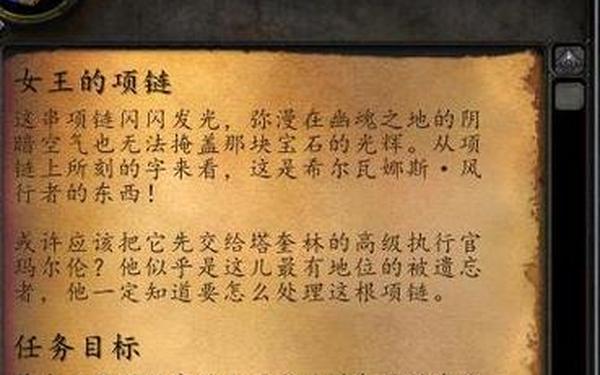 女王的项链
这串项链闪闪发光，弥漫在幽魂之地的阴
暗空气也无法掩盖那块宝石的光辉。从项
链上所刻的字来看，这是希尔瓦娜斯·风
行者的东西！
或许应该把它先交给塔奎林的高级执行官
玛尔伦？他似乎是这儿最有地位的被遗忘
者，他一定知道要怎么处理这根项链。
任务目标